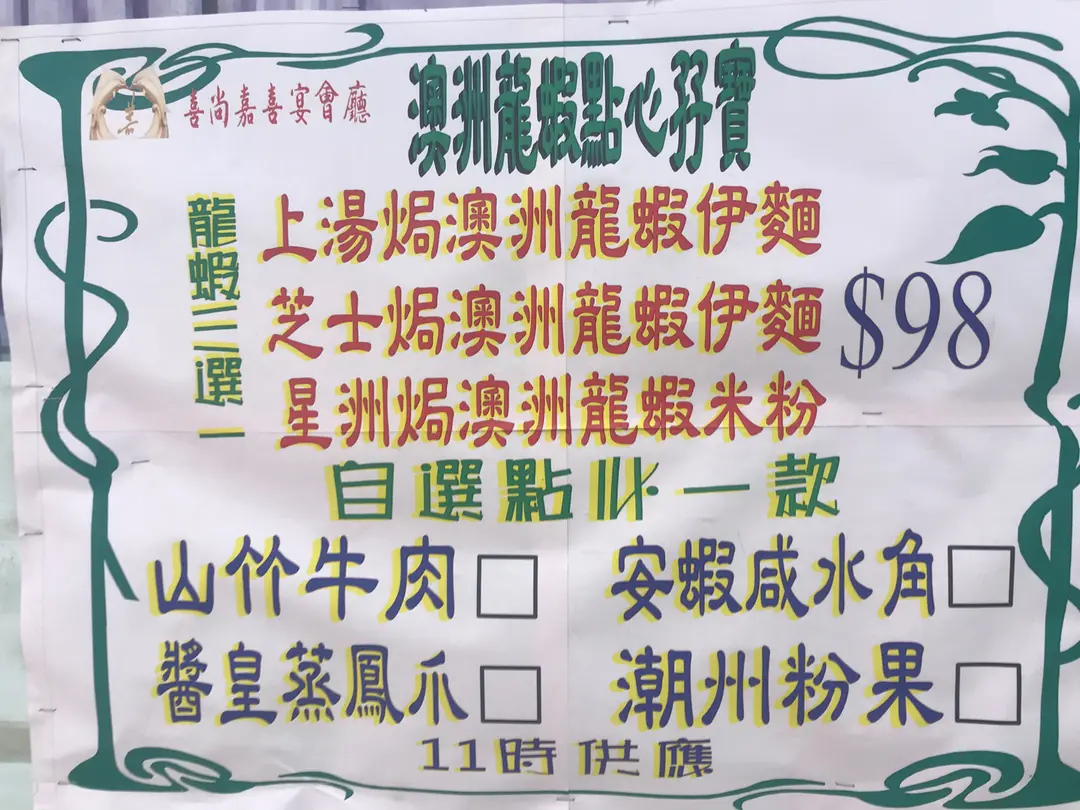 喜尚嘉喜宴會廳
澳洲龍蝦點心孖寶
龍蝦三選一
上湯焗澳洲龍蝦伊麵
芝士焗澳洲龍蝦伊麵
星洲焗澳洲龍蝦米粉
$98
自選點心一款
山竹牛肉 安蝦咸水角
醬皇蒸鳳爪 潮州粉果
11時供應